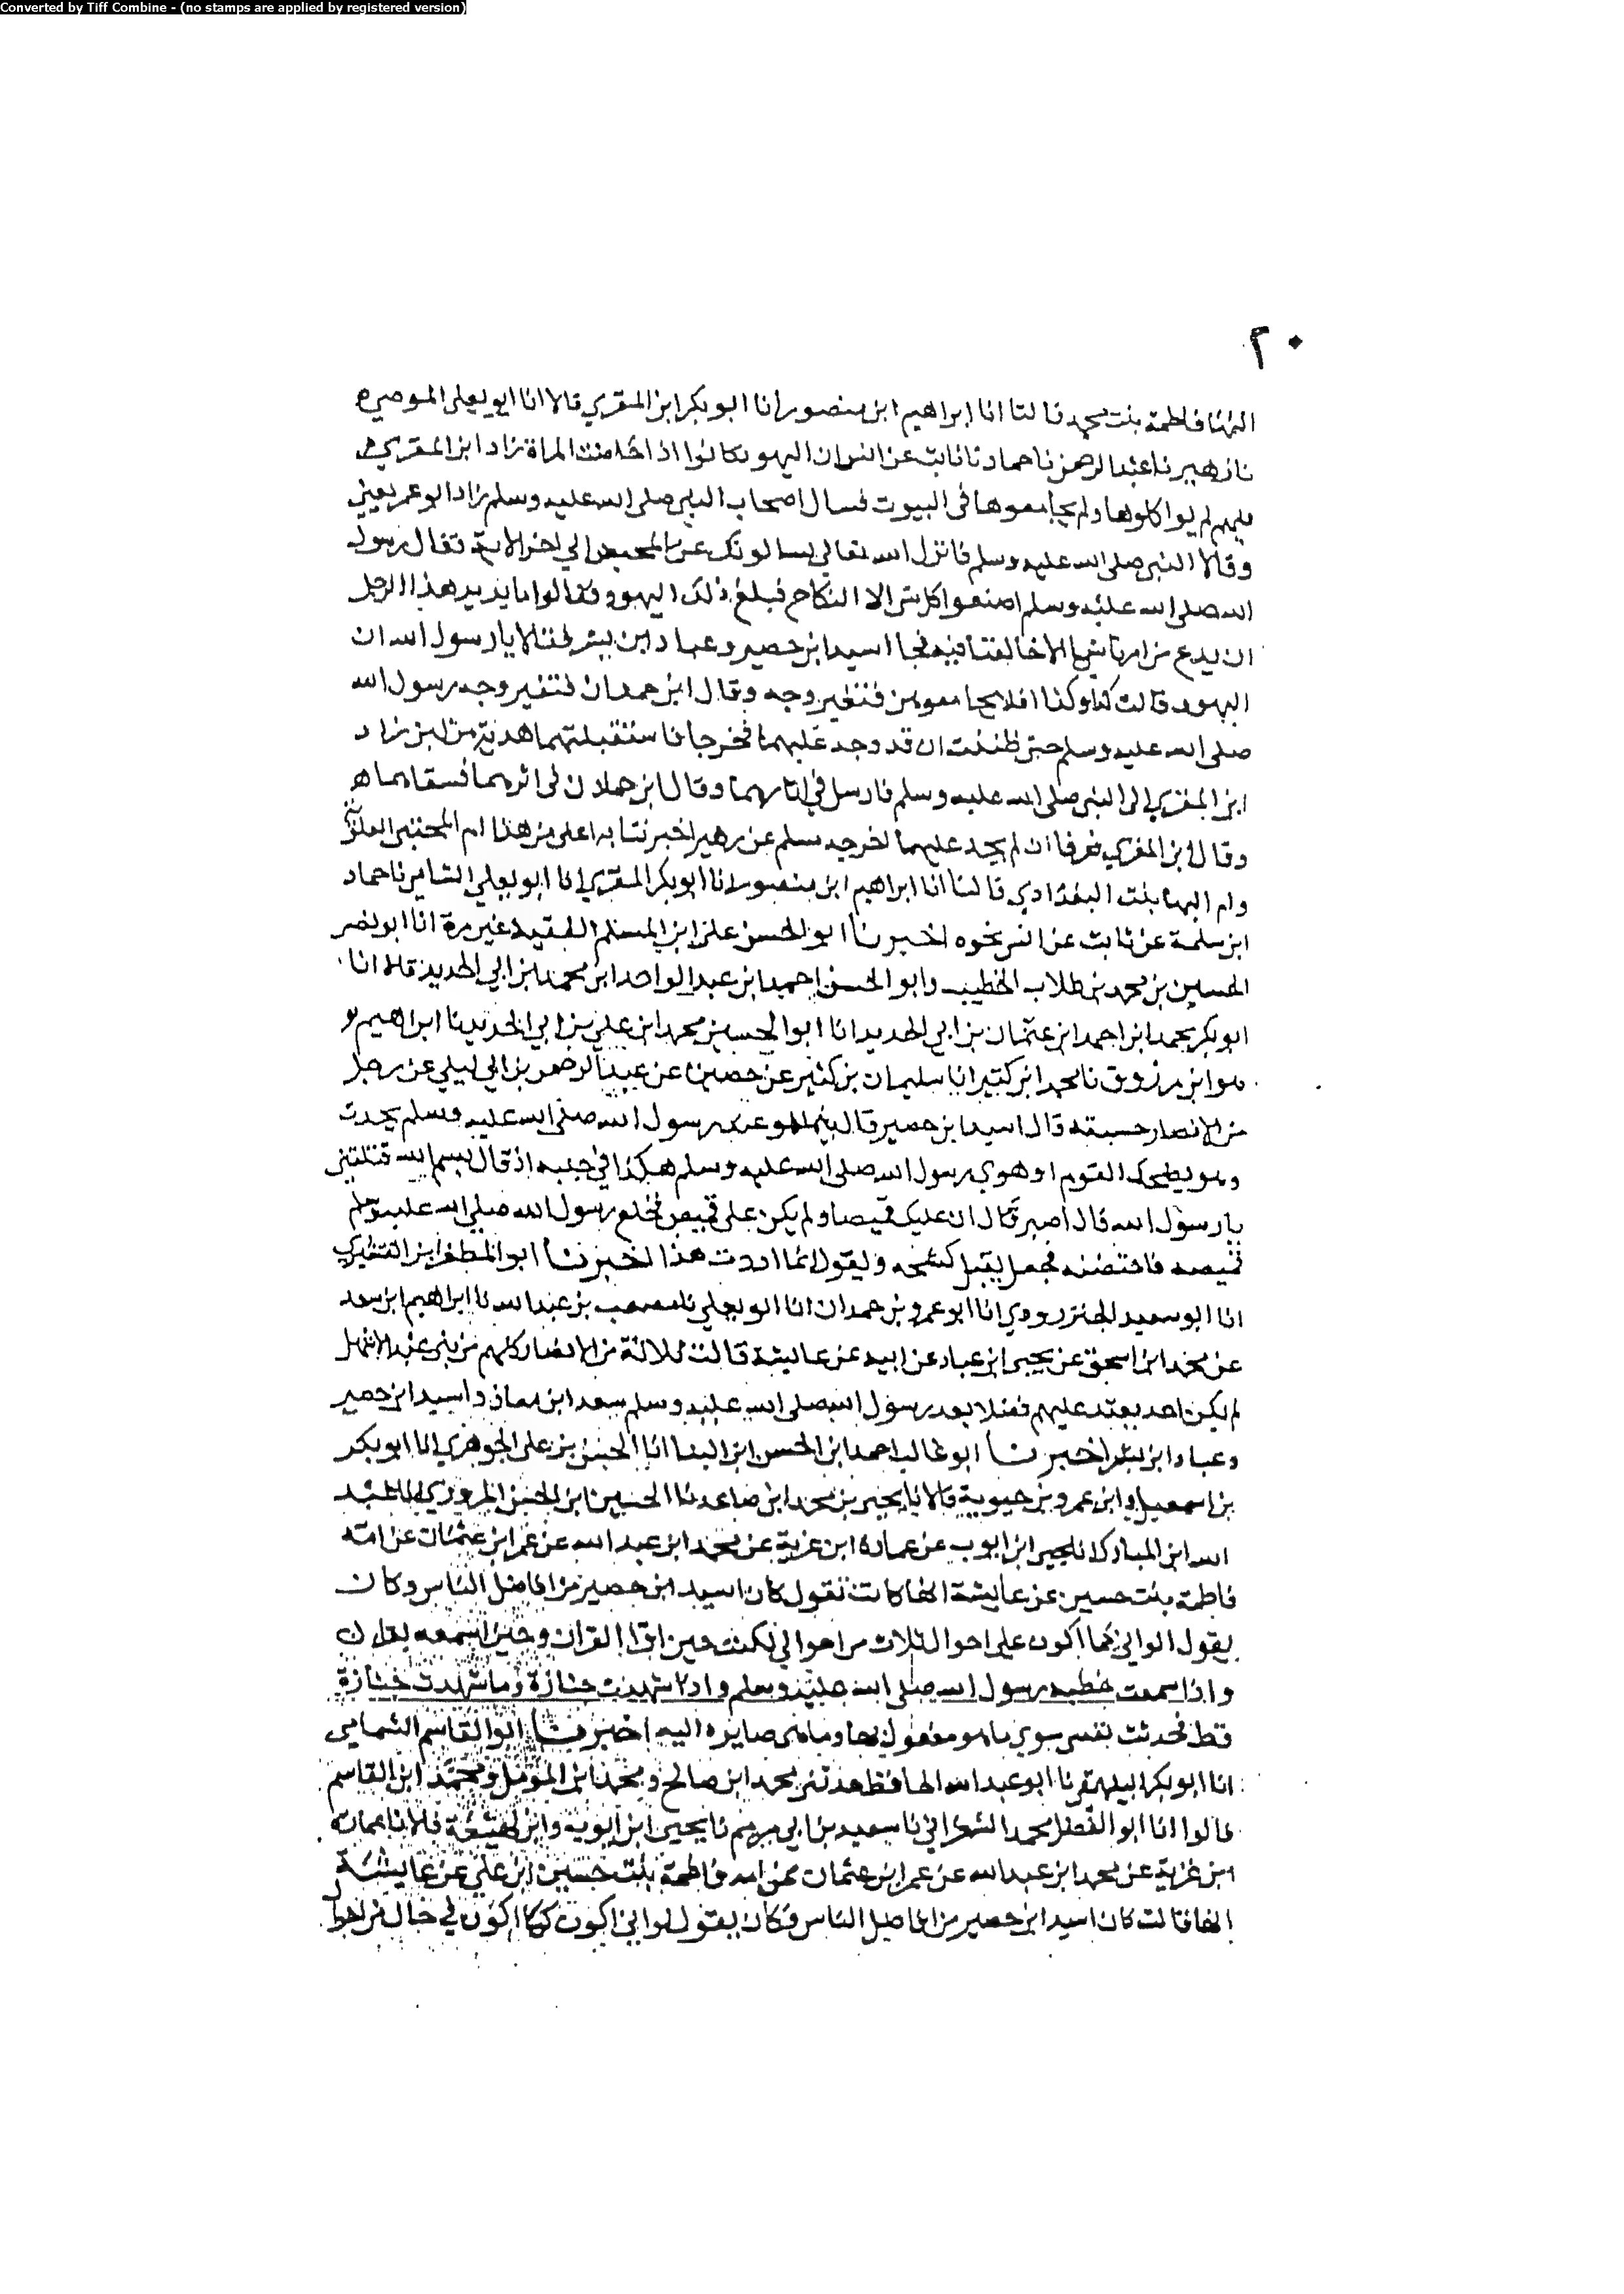 Converted by Tiff Combine - (no stamps are applied by registered version)
٢٠
البها فاطمة بنت محمد قالتا انا ابراهيم ابن منصور انا ابو بكر ابن المقري قالا انا ابو يعلى الموصلي
نا زهير نا عبد الرحمن نا حماد نا ثابت عن انس ان اليهود كانوا اذا حاضت المراة زاد ابن المقري
منهم لم يواكلوها ولم يجامعوها في البيوت فسال اصحاب النبي صلى الله عليه وسلم زاد ابو عمر يعني
وقالا النبي صلى الله عليه وسلم فانزل الله تعالى يسالونك عن المحيض الي اخر الاية فقال رسول
الله صلى الله عليه وسلم اصنعوا كل شي الا النكاح فبلغ ذلك اليهود فقالوا ما يريد هذا الرجل
ان يدع من امرنا شيا الا خالفنا فيه فجا اسيد ابن حضير وعباد ابن بشر فقالا يا رسول الله ان
اليهود قالت كذا وكذا افلا نجامعوهن فتغير وجه وقال ابن حمدان فتغير وجه رسول الله
صلى الله عليه وسلم حتى ظننت ان قد وجد عليهما فخرجا فاستقبلتهما هدية من لبن زاد
ابن المقري الى النبي صلى الله عليه وسلم فارسل في اثارهما وقال ابن حمدان في اثرهما فسقاهما
وقال ابن المقري فعرفا ان لم يجد عليهما اخرجه مسلم عن زهير اخبرتنا به اعلى من هذا ام المجتبى العلوية
وام البها بنت البغدادي قالتا انا ابراهيم ابن منصور انا ابو بكر المقري انا ابو يعلي الشامي نا حماد
ابن سلمة عن ثابت عن انس نحوه اخبرنا ابو الحسن علي ابن المسلم الفقيه غير مرة انا ابو نصر
الحسين بن محمد بن طلاب الخطيب وابو الحسن احمد ابن عبد الواحد ابن محمد بن ابي الحديد قالا انا
ابو بكر محمد ابن احمد ابن عثمان بن ابي الحديد انا ابو الحسين محمد ابن علي بن ابي الحديد نا ابراهيم
هو ابن مرزوق نا محمد ابن كثير انا سليمان بن كثير عن حصين عن عبد الرحمن بن ابي ليلي عن رجل
من الانصار حسبته قال اسيد ابن حضير قال بينما هو عند رسول الله صلى الله عليه وسلم يحدث
وهو يضحك القوم اذ هوي رسول الله صلى الله عليه وسلم هكذا في جنبه اذ قال بسم الله قتلتني
يا رسول الله قال اصبر قال ان عليك قميصا ولم يكن علي قميص فخلع رسول الله صلي الله عليه وسلم
قميصه فاحتضنه فجعل يقبل كشحه ويقول انما اردت هذا اخبرنا ابو المظفر ابن القشيري
انا ابو سعيد الجنزرودي انا ابو عمرو بن حمدان انا ابو يعلي نا مصعب بن عبد الله نا ابراهيم ابن سعد
عن محمد ابن اسحق عن يحيى ابن عباد عن ابيه عن عايشة قالت ثلاثة من الانصار كلهم من بني عبد الاشهل
لم يكن احد يعتد عليهم فضلا بعد رسول الله صلى الله عليه وسلم سعد ابن معاذ واسيد ابن حضير
وعباد ابن بشر اخبرنا ابو غالب احمد ابن الحسن ابن البنا انا الحسن بن علي الجوهري انا ابو بكر
بن اسمعيل وابن عمرو بن حيوية قالا نا يحيى بن محمد ابن صاعد نا الحسين ابن الحسن المروزي
الله ابن المبارك نا يحيى ابن ايوب عن عمارة ابن غزية عن محمد ابن عبد الله عن عمر ابن عثمان عن امه
فاطمة بنت حسين عن عايشة انها كانت تقول كان اسيد ابن حضير من افاضل الناس وكان
يقول لو اني كما اكون على احوال ثلاث من احوالي لكنت حين اقرا القران وحين اسمعه يقرا
واذا سمعت خطبة رسول الله صلى الله عليه وسلم واذا شهدت جنازة وما شهدت جنازة
قط فحدثت نفسي سوي ما هو مفعول بها وما هي صايرة اليه اخبرنا ابو القاسم الشحامي
انا ابو بكر البيهقي نا ابو عبد الله الحافظ حدثني محمد ابن صالح ومحمد ابن المؤمل ومحمد ابن القاسم
قالوا انا ابو الفضل محمد الشعراني نا سعيد بن ابي مريم نا يحيى ابن ايوب وابن لهيعة قالا نا عمارة
ابن غزية عن محمد ابن عبد الله عن عمر ابن عثمان عن امه فاطمة بنت حسين ابن علي عن عايشة
انها قالت كان اسيد ابن حضير من افاضل الناس فكان يقول لو اني اكون كما اكون في حال من احوال